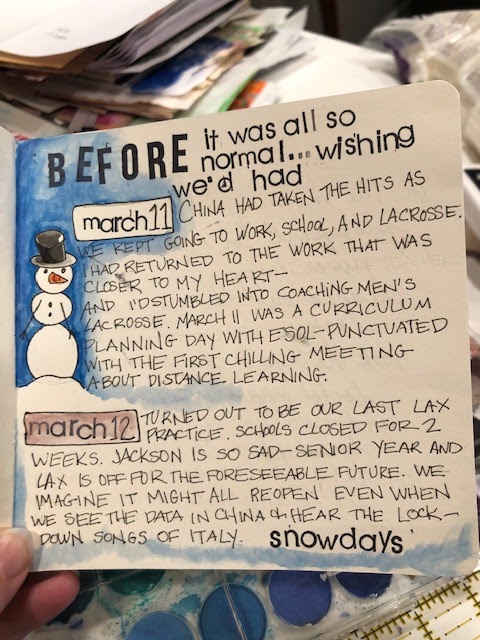 BEFORE it was all so
normal... wishing
we'd had
march 11 CHINA HAD TAKEN THE HITS AS
WE KEPT GOING TO WORK, SCHOOL, AND LACROSSE.
I HAD RETURNED TO THE WORK THAT WAS
CLOSER TO MY HEART—
AND I'D STUMBLED INTO COACHING MEN'S
LACROSSE. MARCH 11 WAS A CURRICULUM
PLANNING DAY WITH ESOL-PUNCTUATED
WITH THE FIRST CHILLING MEETING
ABOUT DISTANCE LEARNING.
march 12 TURNED OUT TO BE OUR LAST LAX
PRACTICE. SCHOOLS CLOSED FOR 2
WEEKS. JACKSON IS SO SAD—SENIOR YEAR AND
LAX IS OFF FOR THE FORESEEABLE FUTURE. WE
IMAGINE IT MIGHT ALL REOPEN EVEN WHEN
WE SEE THE DATA IN CHINA & HEAR THE LOCK-
DOWN SONGS OF ITALY. snowdays